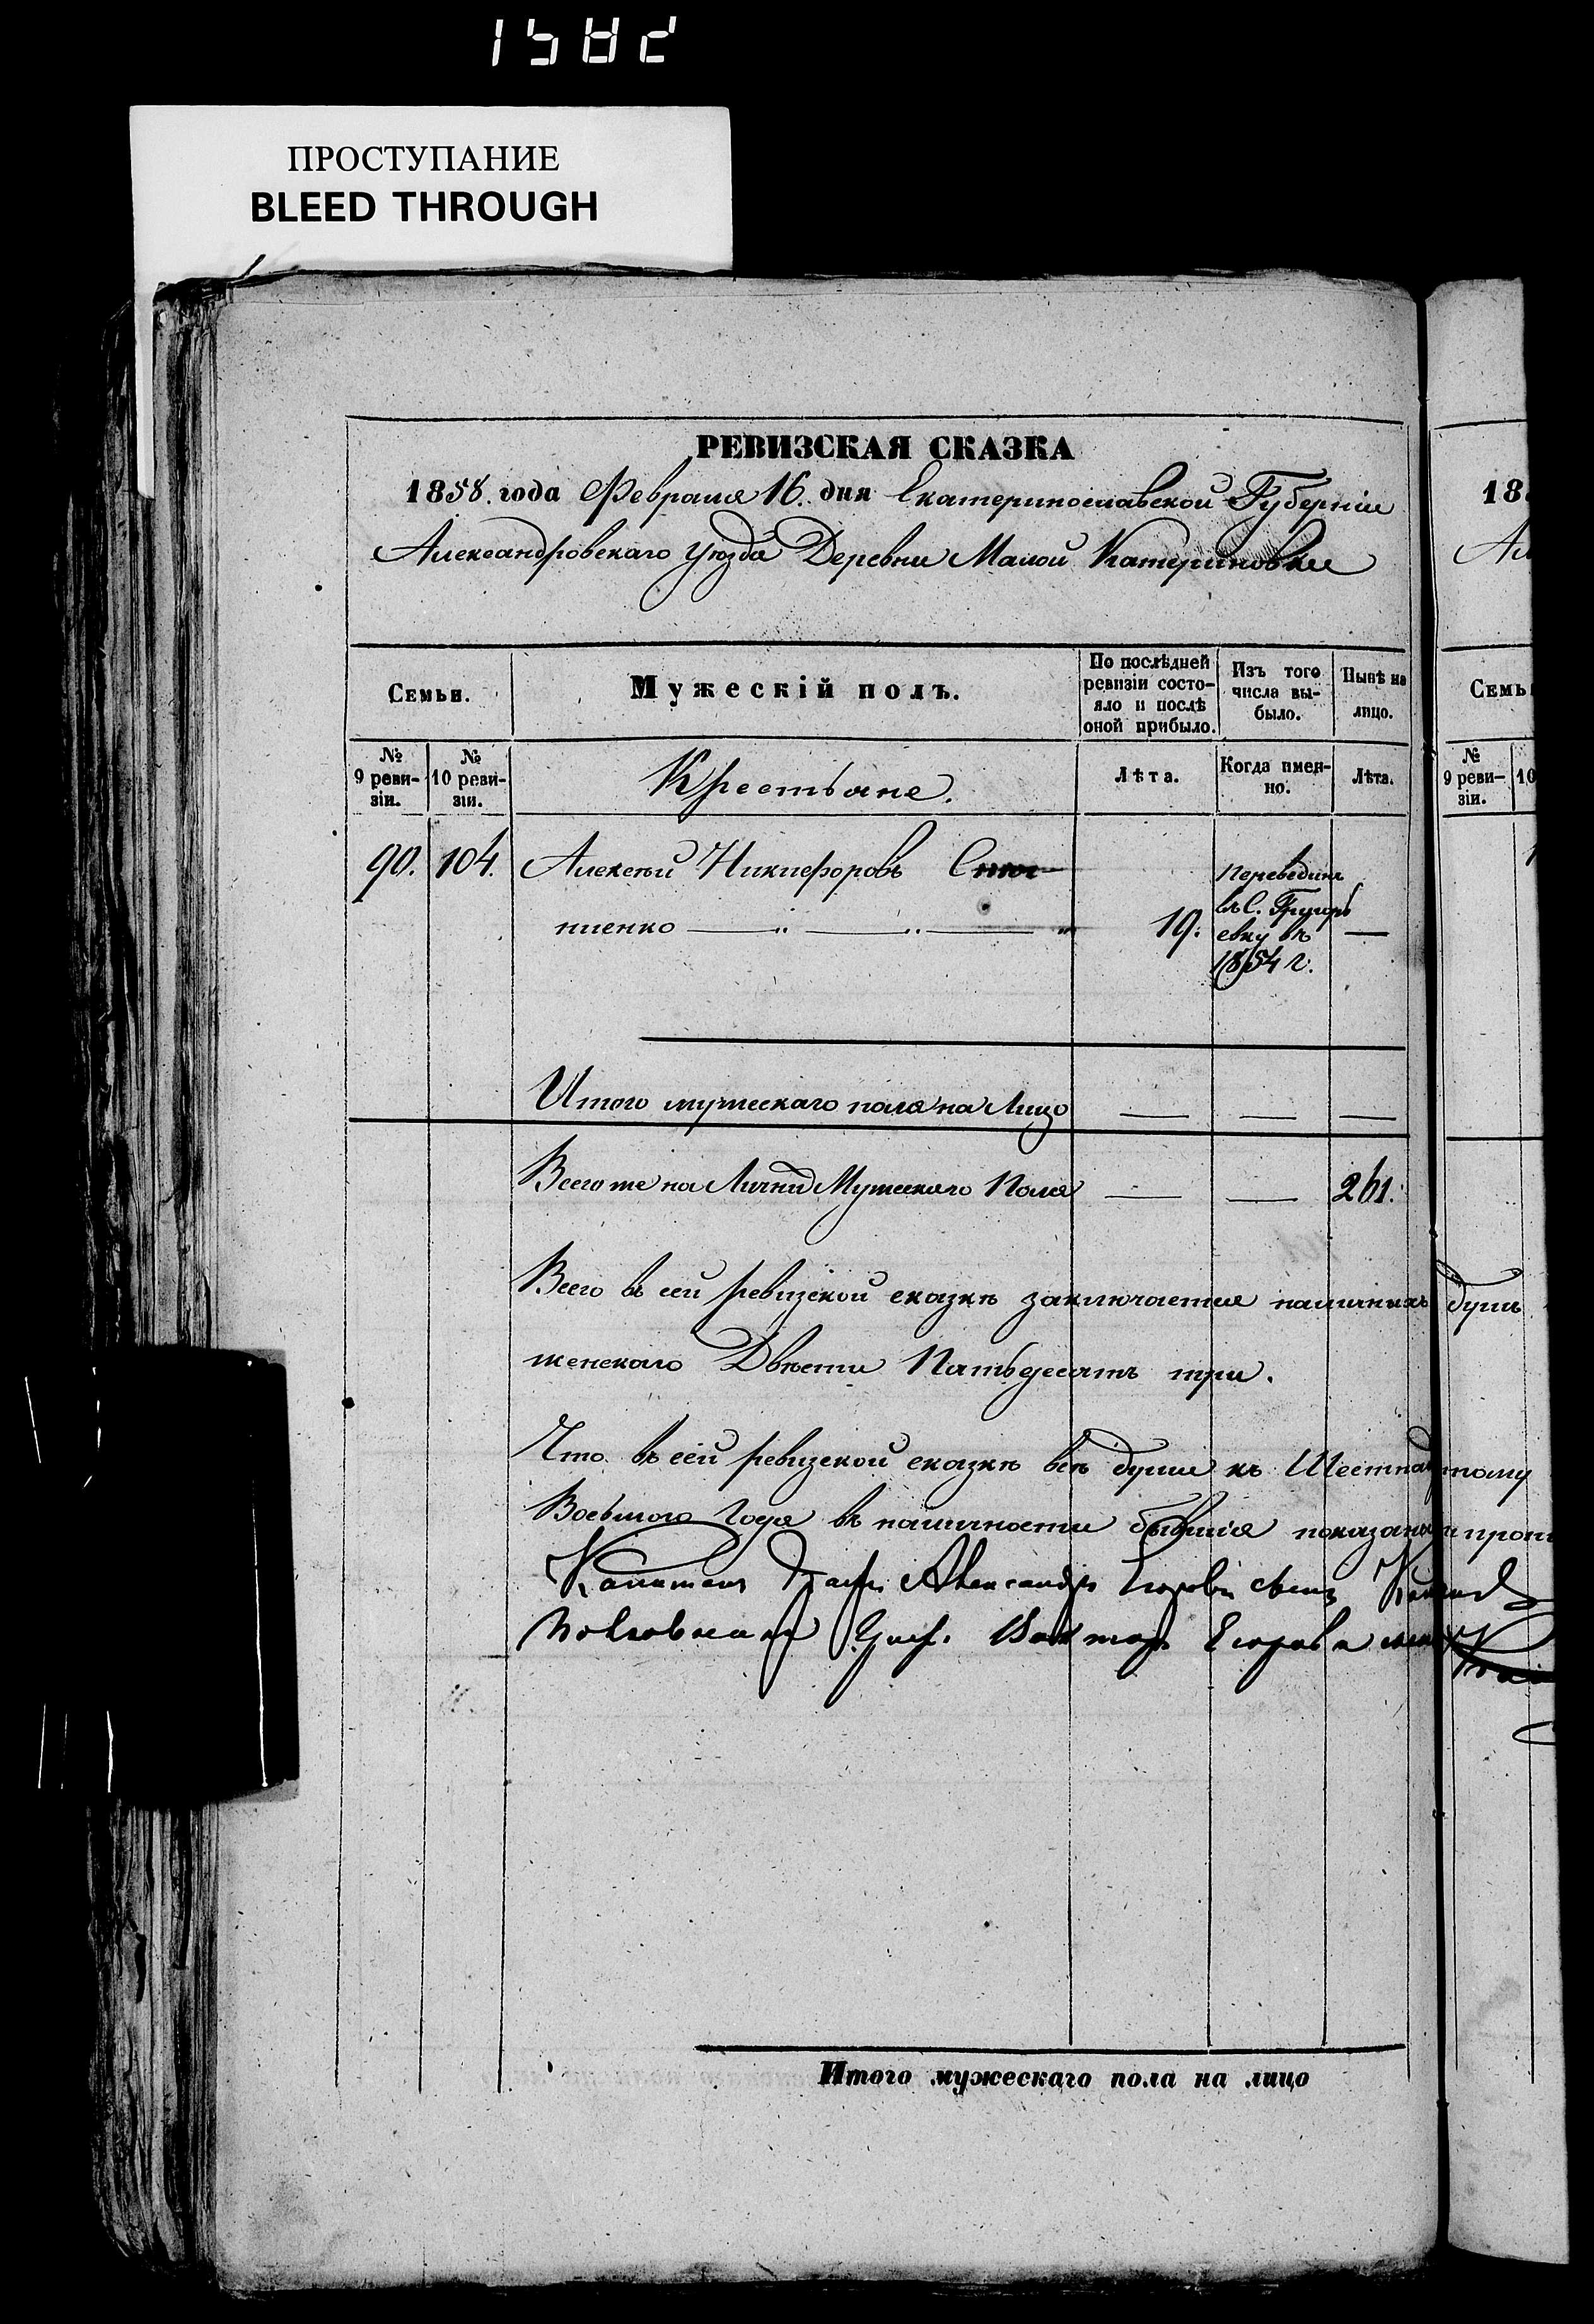 1582
ПРОСТУПАНИЕ
BLEED THROUGH
РЕВИЗСКАЯ СКАЗКА
1858. года Февраля 16. дня Екатеринославской Губернiи
Александровскаго уѣзда Деревни Малой Катериновки
18
Ал
Семьи.
Мужескiй полъ.
По послѣдней ревизiи состояло и послѣ оной прибыло.
Изъ того числа выбыло.
Нынѣ на лицо.
Семь
№ 9 ревизiи.
№ 10 ревизiи.
Крестьяне.
Лѣта.
Когда именно.
Лѣта.
№ 9 ревизiи.
10
90. 104. Алексѣй Никифоровъ
пиенко 19. переведенъ въ С. Григорьевку въ 1854 г. —
Итого мужескаго пола на Лицо — — —
Всего же на Лицо Мужескаго Пола — — 261.
Всего въ сей ревизской сказкѣ заключается наличныхъ душъ
женскаго Двѣсти Пятьдесятъ три.
Что въ сей ревизской сказкѣ всѣ души къ Шестнадцатому
Восьмого Года въ наличности бывшiя показаны и
Капитанъ Графъ Александръ Егоровъ сынъ
Полковникъ Графъ Викторъ Егоровъ сынъ
Итого мужескаго пола на лицо